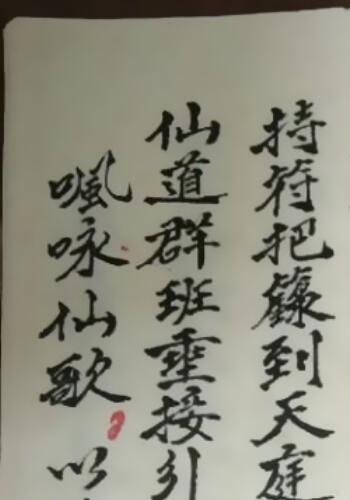 持符把籙到天庭
仙道群班垂接引
嘔咏仙歌以